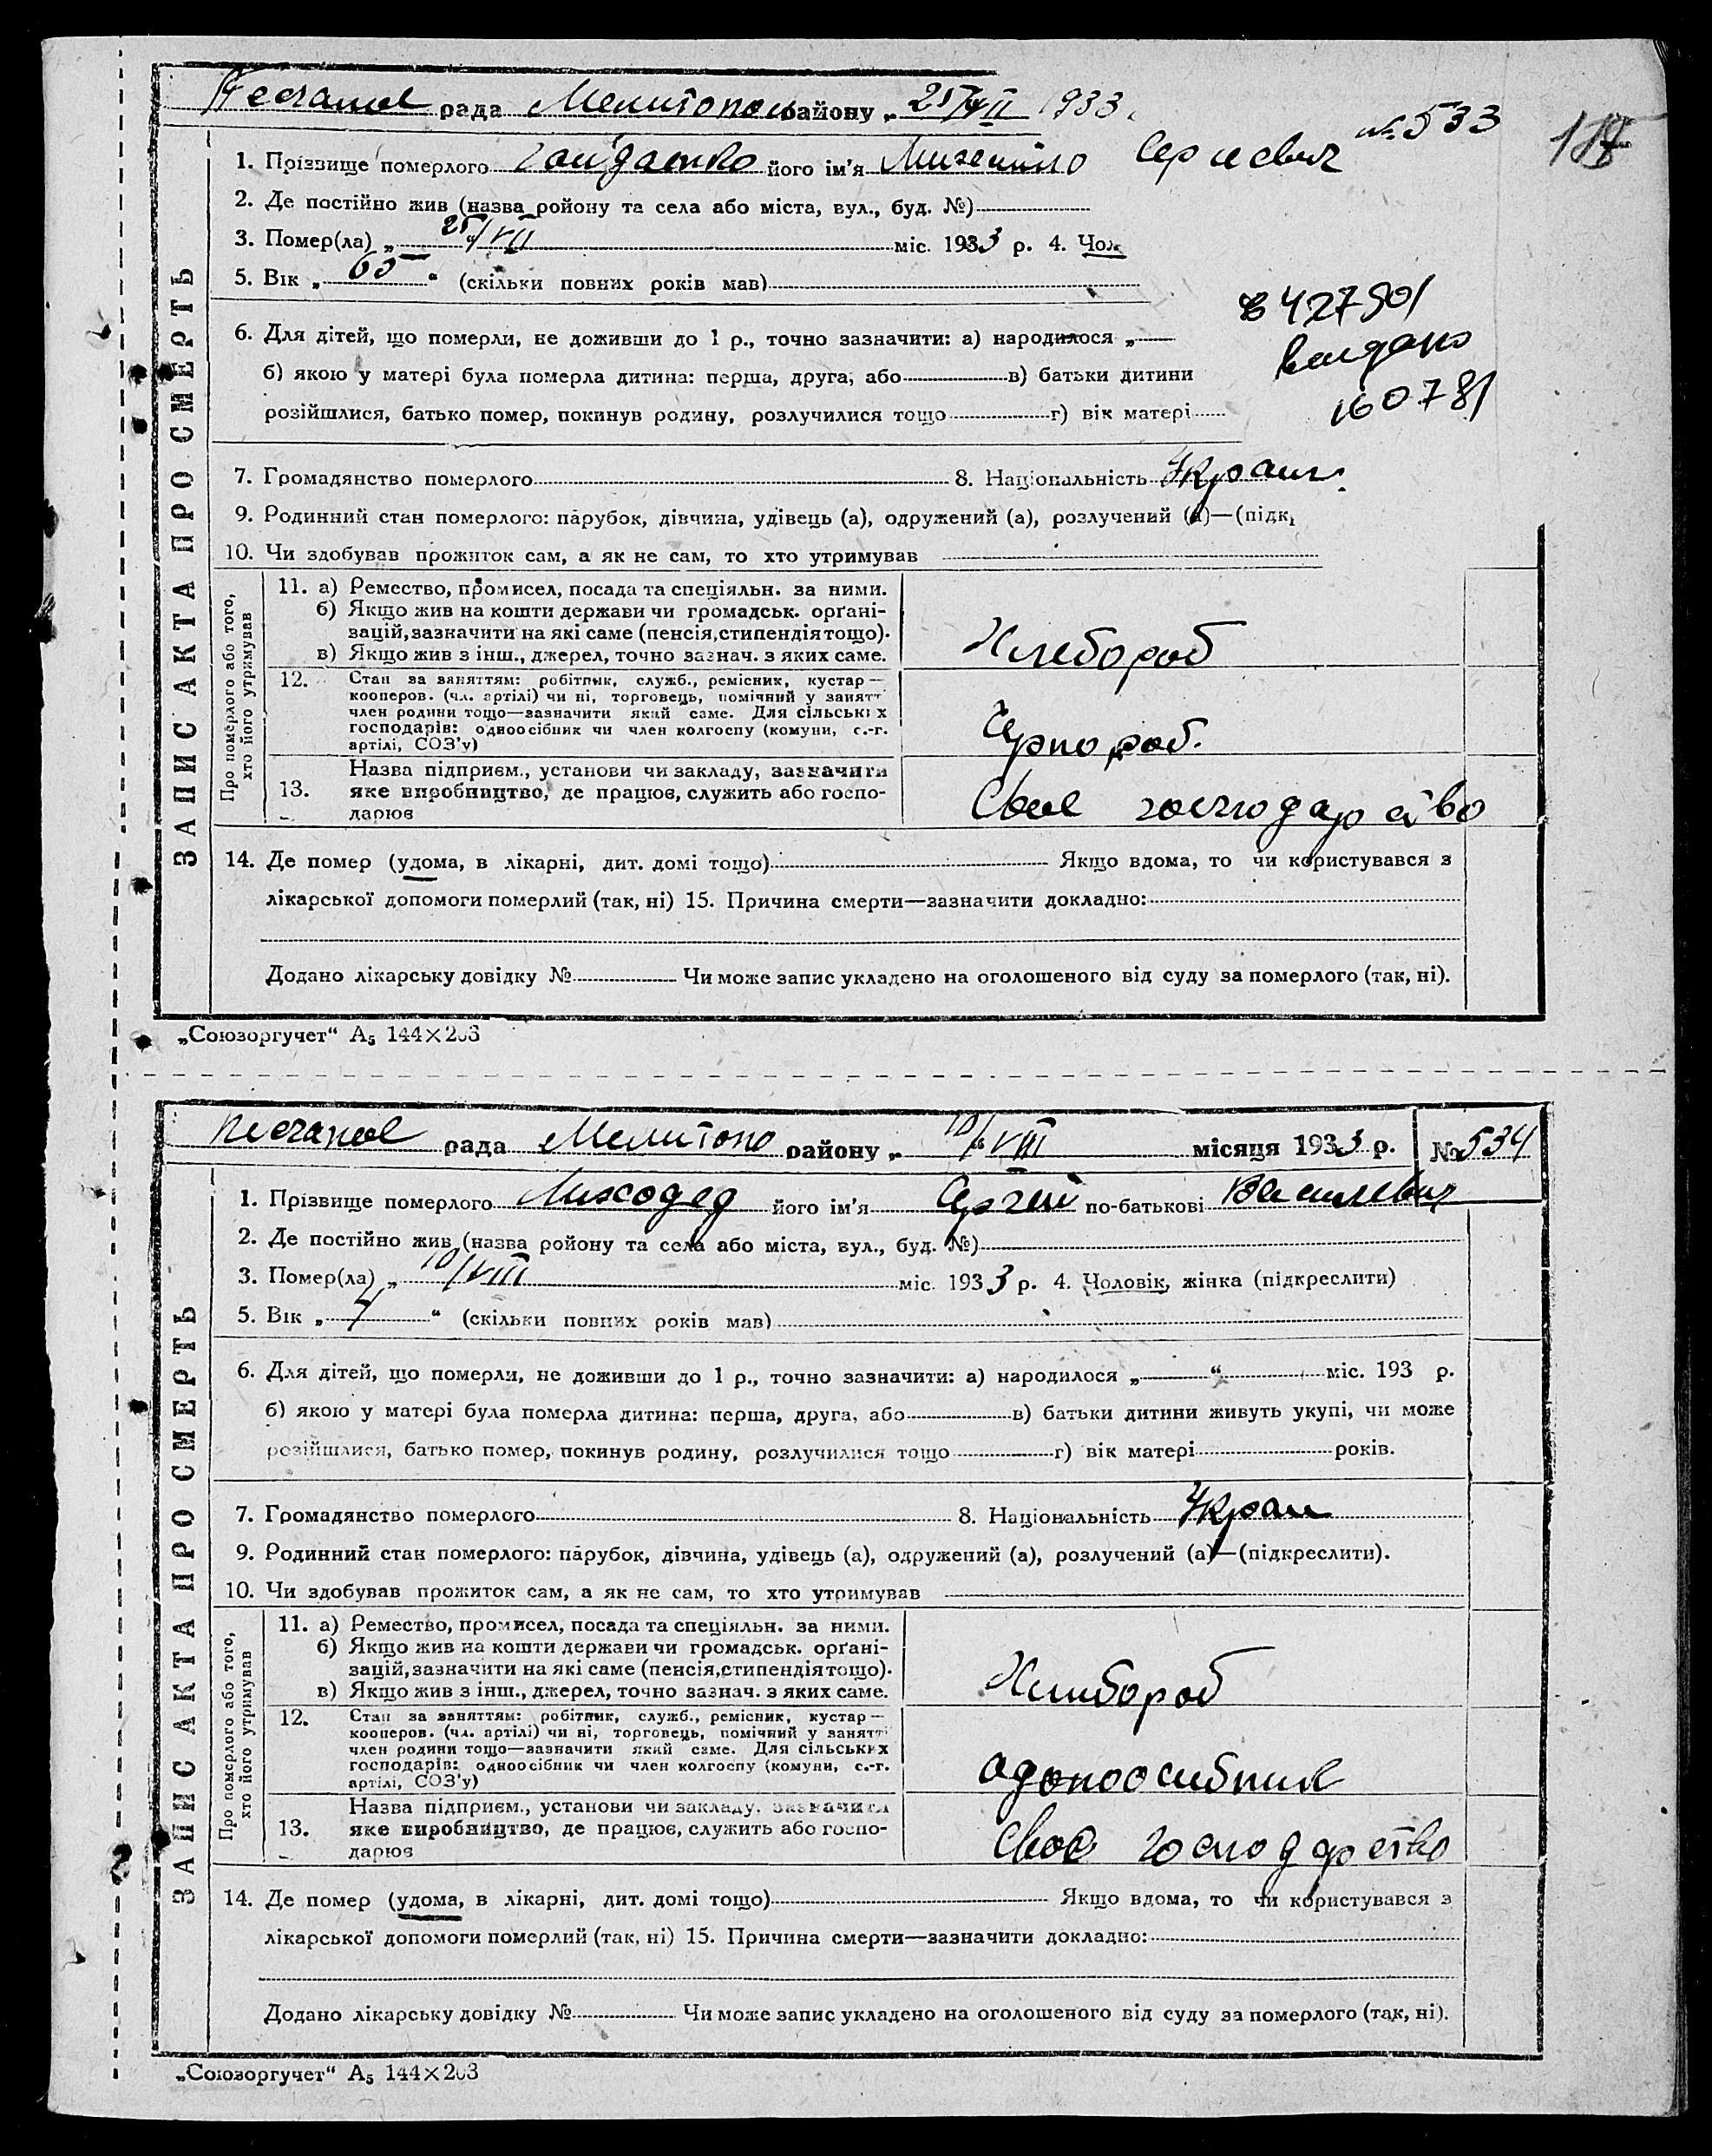 рада Мелитопол району „ 25/VII 1933.
№ 533
1. Прізвище померлого Гайдаенко його ім'я Михайло Сергиевич
2. Де постійно жив (назва ройону та села або міста, вул., буд. №)
3. Помер(ла) „ 25/VII міс. 1933 р. 4. Чол
5. Вік „ 65 “ (скільки повних років мав)
6. Для дітей, що померли, не доживши до 1 р., точно зазначити: а) народилося „
б) якою у матері була померла дитина: перша, друга, або в) батьки дитини
розійшлися, батько помер, покинув родину, розлучилися тощо г) вік матері
7. Громадянство померлого 8. Національність Украин.
9. Родинний стан померлого: парубок, дівчина, удівець (а), одружений (а), розлучений (а)—(підк
10. Чи здобував прожиток сам, а як не сам, то хто утримував
ЗАПИС АКТА ПРО СМЕРТЬ
Про померлого або того, хто його утримував
11. а) Ремество, промисел, посада та спеціяльн. за ними.
б) Якщо жив на кошти держави чи громадськ. орґані-
зацій, зазначити на які саме (пенсія, стипендія тощо).
в) Якщо жив з інш., джерел, точно зазнач. з яких саме.
Хлебороб
12. Стан за заняттям: робітник, служб., ремісник, кустар—
кооперов. (чл. артілі) чи ні, торговець, помічний у занятт
член родини тощо—зазначити який саме. Для сільських
господарів: одноосібник чи член колгоспу (комуни, с.-г.
артілі, СОЗ'у)
13. Назва підприєм., установи чи закладу, зазначити
яке виробництво, де працює, служить або госпо-
дарює
Свое господарство
14. Де помер (удома, в лікарні, дит. домі тощо) Якщо вдома, то чи користувався з
лікарської допомоги померлий (так, ні) 15. Причина смерти—зазначити докладно:
Додано лікарську довідку № Чи може запис укладено на оголошеного від суду за померлого (так, ні).
„Союзоргучет“ А5 144×203
рада Мелитопо району „ 10/VIII місяця 1933 р. № 534
1. Прізвище померлого Лиходед його ім'я Сергей по-батькові Василевич
2. Де постійно жив (назва ройону та села або міста, вул., буд. №)
3. Помер(ла) „ 10/VIII міс. 1933 р. 4. Чоловік, жінка (підкреслити)
5. Вік „ 7 “ (скільки повних років мав)
6. Для дітей, що померли, не доживши до 1 р., точно зазначити: а) народилося „ “ міс. 193 р.
б) якою у матері була померла дитина: перша, друга, або в) батьки дитини живуть укупі, чи може
розійшлися, батько помер, покинув родину, розлучилися тощо г) вік матері років.
7. Громадянство померлого 8. Національність Украи
9. Родинний стан померлого: парубок, дівчина, удівець (а), одружений (а), розлучений (а)—(підкреслити).
10. Чи здобував прожиток сам, а як не сам, то хто утримував
ЗАПИС АКТА ПРО СМЕРТЬ
Про померлого або того, хто його утримував
11. а) Ремество, промисел, посада та спеціяльн. за ними.
б) Якщо жив на кошти держави чи громадськ. орґані-
зацій, зазначити на які саме (пенсія, стипендія тощо).
в) Якщо жив з інш., джерел, точно зазнач. з яких саме.
Хлибороб
12. Стан за заняттям: робітник, служб., ремісник, кустар—
кооперов. (чл. артілі) чи ні, торговець, помічний у занятті
член родини тощо—зазначити який саме. Для сільських
господарів: одноосібник чи член колгоспу (комуни, с.-г.
артілі, СОЗ'у)
одноосибник
13. Назва підприєм., установи чи закладу, зазначити
яке виробництво, де працює, служить або госпо-
дарює
Своє господарство
14. Де помер (удома, в лікарні, дит. домі тощо) Якщо вдома, то чи користувався з
лікарської допомоги померлий (так, ні) 15. Причина смерти—зазначити докладно:
Додано лікарську довідку № Чи може запис укладено на оголошеного від суду за померлого (так, ні).
„Союзоргучет“ А5 144×203